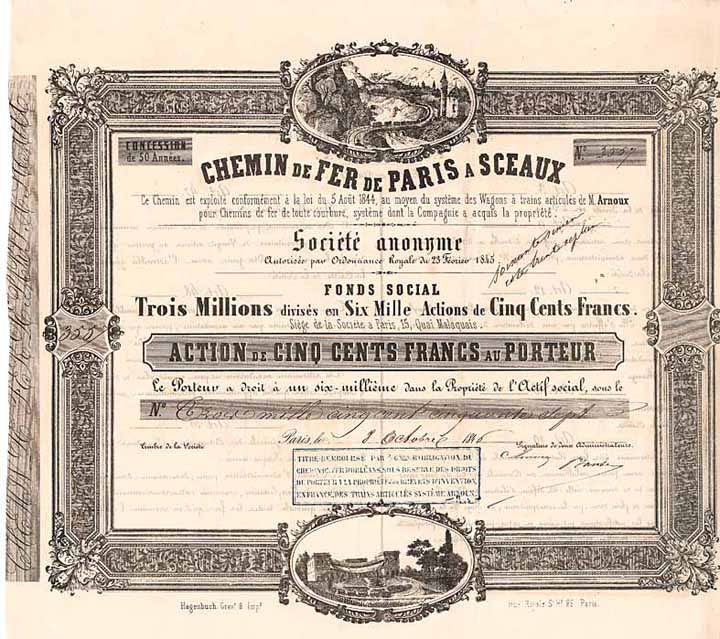 CONCESSION
de 50 Années.
N° 3557
CHEMIN DE FER DE PARIS A SCEAUX
Ce Chemin est exploité conformément à la loi du 5 Août 1844, au moyen du système des Wagons à trains articulés de M. Arnoux
pour Chemins de fer de toute courbure, système dont la Compagnie a acquis la propriété.
Société anonyme
Autorisée par Ordonnance Royale du 23 Février 1845.
FONDS SOCIAL
Trois Millions divisés en Six Mille Actions de Cinq Cents Francs.
Siége de la Société a Paris, 25, Quai Malaquais.
3557
ACTION DE CINQ CENTS FRANCS AU PORTEUR
Le Porteur a droit à un six-millième dans la Propriété de l'Actif social, sous le
N° Trois mille cinq cent cinquante sept
Paris, le 8 Octobre 1846
Timbre de la Société
Signature de deux Administrateurs.
TITRE REMBOURSÉ PAR OBLIGATION DU
CHEMIN DE FER D'ORLÉANS, SOUS RESERVE DES DROITS
DU PORTEUR A LA PROPRIÉTÉ DES BREVETS D'INVENTION,
EN FRANCE, DES TRAINS ARTICULÉS SYSTÈME ARNOUX
Hagenbuch Grav. & Imp.
rue Royale St. Hé. Paris.